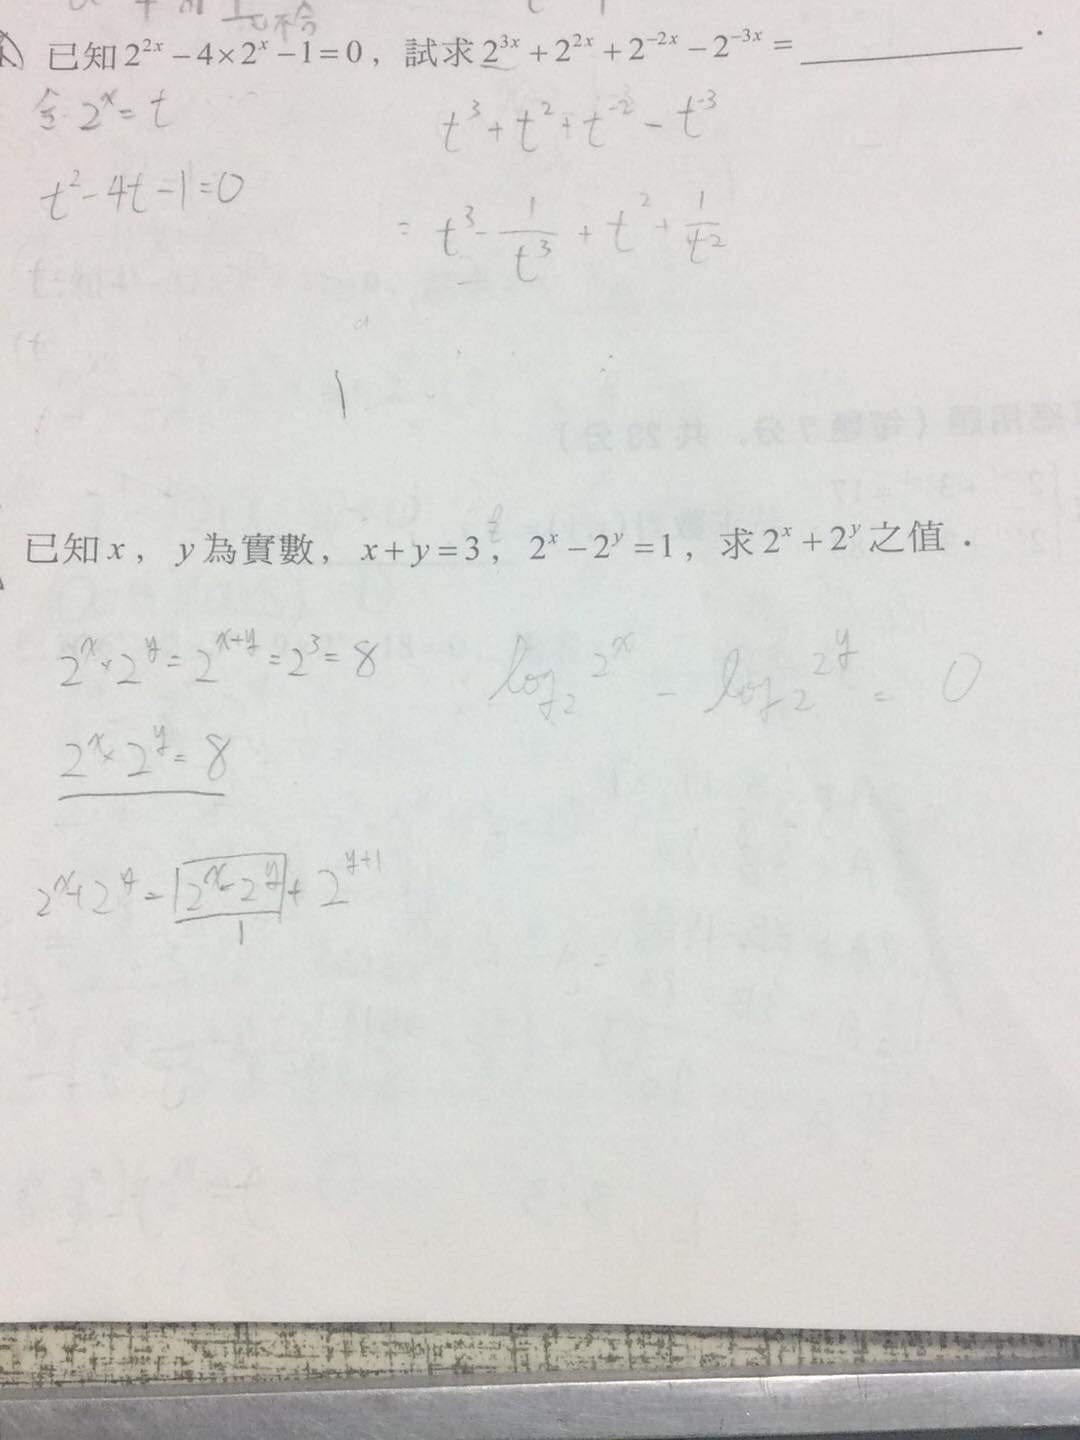 不合
已知 2^{2x} − 4×2^x − 1 = 0，試求 2^{3x} + 2^{2x} + 2^{-2x} − 2^{-3x} = ________．
令 2^x = t
t^3 + t^2 + t^{-2} − t^{-3}
t^2 − 4t − 1 = 0
= t^3 − \frac{1}{t^3} + t^2 + \frac{1}{t^2}
已知 x，y 為實數，x + y = 3，2^x − 2^y = 1，求 2^x + 2^y 之值．
2^x × 2^y = 2^{x+y} = 2^3 = 8
log_2 2^x − log_2 2^y = 0
2^x × 2^y = 8
2^x + 2^y = 2^x − 2^y + 2^{y+1}
1